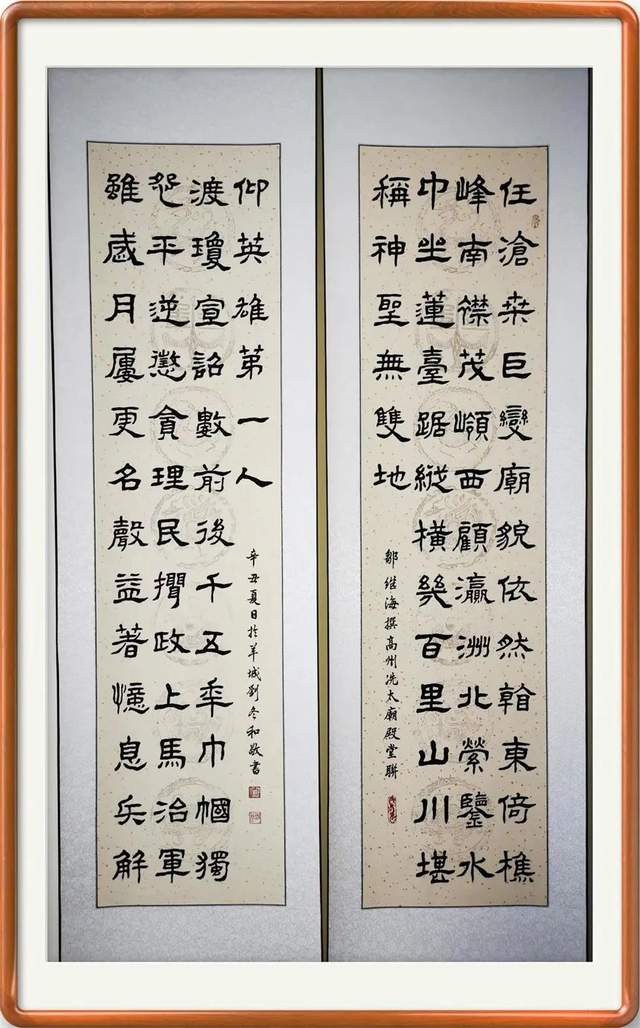 任滄桒巨變廟貌依然翰東倚樵
峰南襟茂嶺西顧瀛洲北縈鑒水
中坐蓮臺踞縱橫幾百里山川堪
稱神聖無雙地
鄒继海撰高州冼太廟殿堂聯
雖歲月屢更名聲益著憶息兵解
怨平逆懲貪理民政上馬治軍
渡瓊宣詔數前後千五年巾幗獨
仰英雄第一人
辛丑夏日於羊城劉冬和敬書